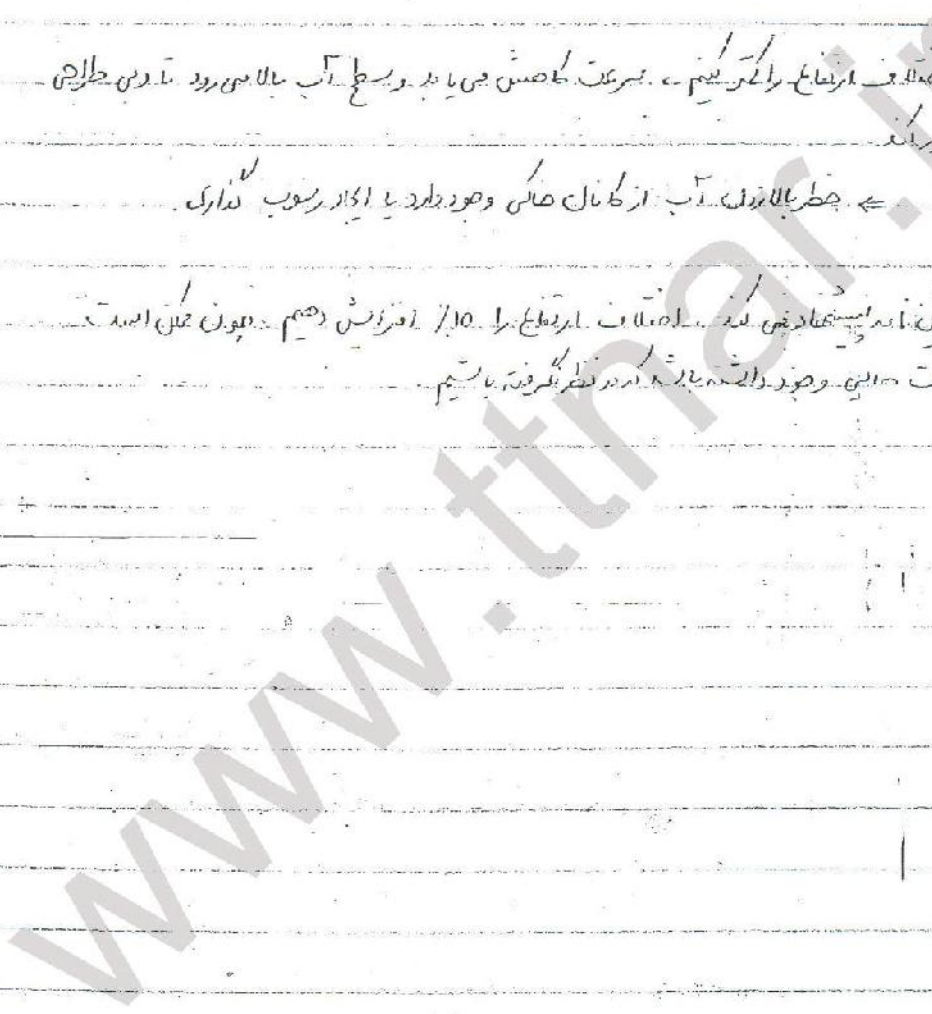 اختلاف ارتفاع را کمتر کنیم، سرعت کاهش می یابد و سطح آب بالا می رود تا دبی طراحی
⇐ خطر بالا زدن آب از کانال خاکی وجود دارد یا ایجاد رسوب گذاری
نامه پیشنهاد می کند، اختلاف ارتفاع را 10% افزایش دهیم چون ممکن است
وجود داشته باشد که در نظر نگرفته باشیم
www.ttnar.ir